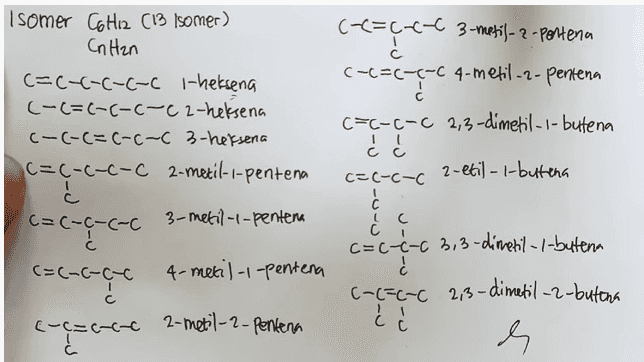 Isomer C6H12 (13 Isomer)
CnH2n
C=C-C-C-C-C 1-heksena
C-C=C-C-C-C 2-heksena
C-C-C=C-C-C 3-heksena
C=C-C-C-C 2-metil-1-pentena
C
C=C-C-C-C 3-metil-1-pentena
C
C=C-C-C-C 4-metil-1-pentena
C
C-C=C-C-C 2-metil-2-pentena
C
C-C=C-C-C 3-metil-2-pentena
C
C-C=C-C-C 4-metil-2-pentena
C
C=C-C-C 2,3-dimetil-1-butena
C C
C=C-C-C 2-etil-1-butena
C
C C
C=C-C-C 3,3-dimetil-1-butena
C
C-C=C-C 2,3-dimetil-2-butena
C C